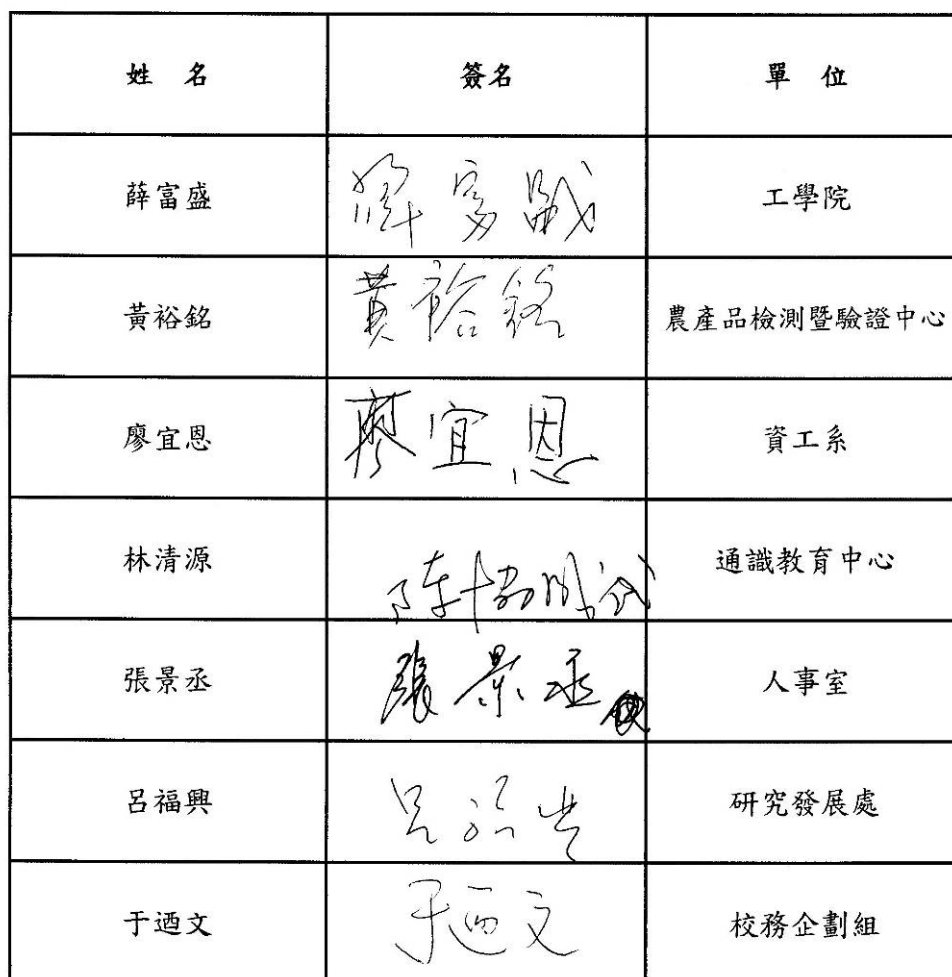 姓 名 簽名 單 位
薛富盛 薛富盛 工學院
黃裕銘 黃裕銘 農產品檢測暨驗證中心
廖宜恩 廖宜恩 資工系
林清源 通識教育中心
張景丞 張景丞 人事室
呂福興 呂福興 研究發展處
于迺文 于迺文 校務企劃組